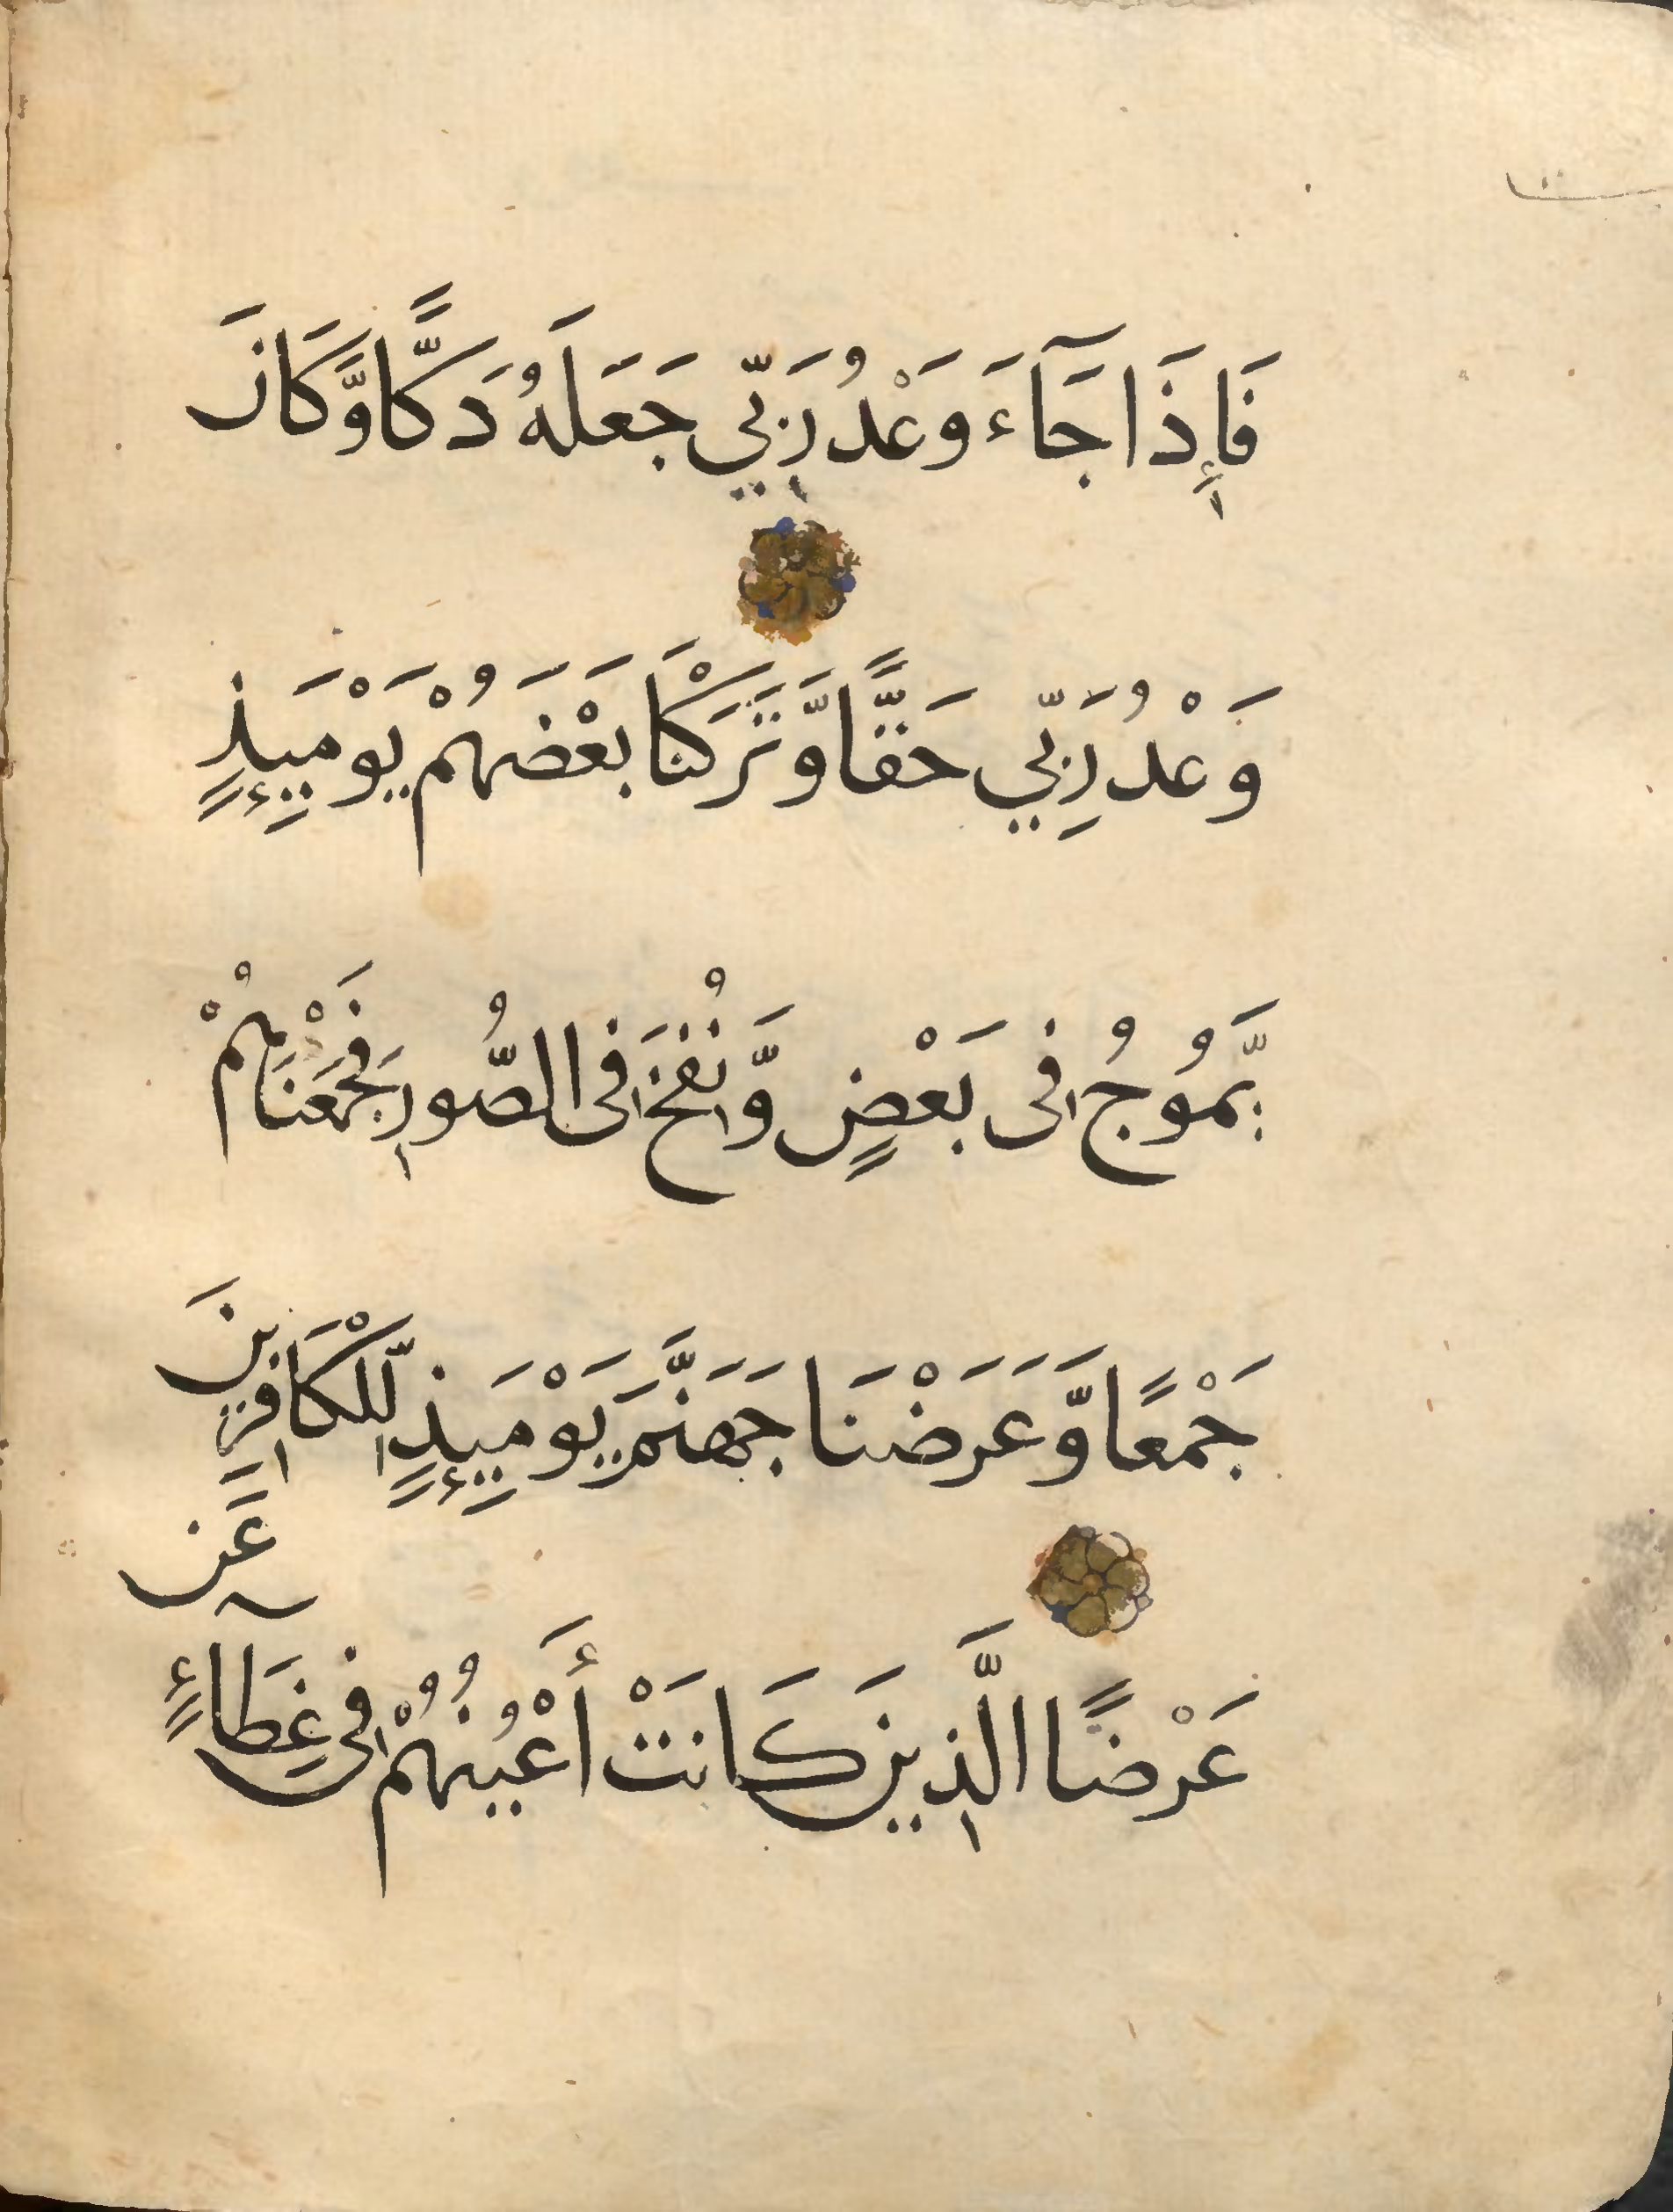 فَإِذَا جَآءَ وَعْدُ رَبِّي جَعَلَهُ دَكًّا وَّكَانَ
وَعْدُ رَبِّي حَقًّا وَّتَرَكْنَا بَعْضَهُمْ يَوْمَئِذٍ
يَّمُوجُ فِى بَعْضٍ وَّنُفِخَ فِى الصُّورِ فَجَمَعْنَاهُمْ
جَمْعًا وَّعَرَضْنَا جَهَنَّمَ يَوْمَئِذٍ لِّلْكَافِرِينَ
عَرْضًا الَّذِينَ كَانَتْ أَعْيُنُهُمْ فِى غِطَآءٍ عَن